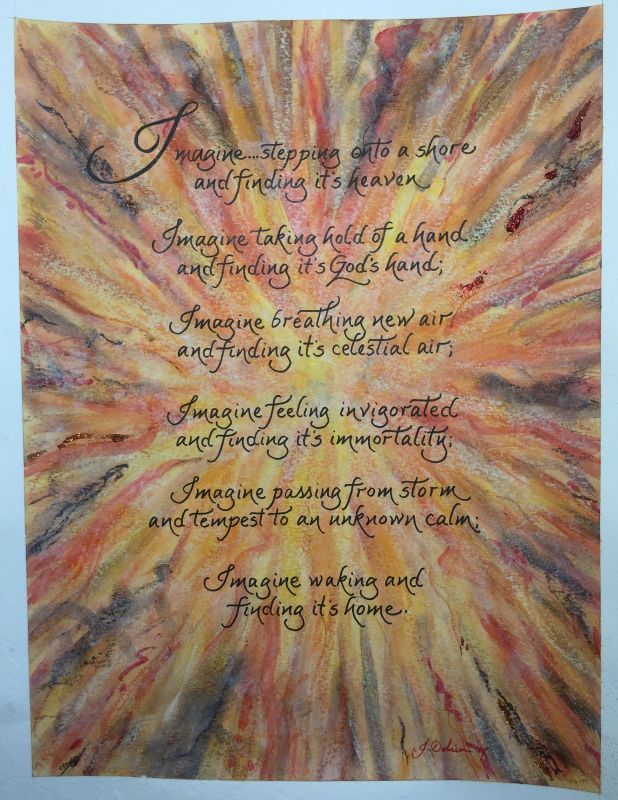 Imagine....stepping onto a shore
and finding it's heaven
Imagine taking hold of a hand
and finding it's God's hand;
Imagine breathing new air
and finding it's celestial air;
Imagine feeling invigorated
and finding it's immortality;
Imagine passing from storm
and tempest to an unknown calm;
Imagine waking and
finding it's home.